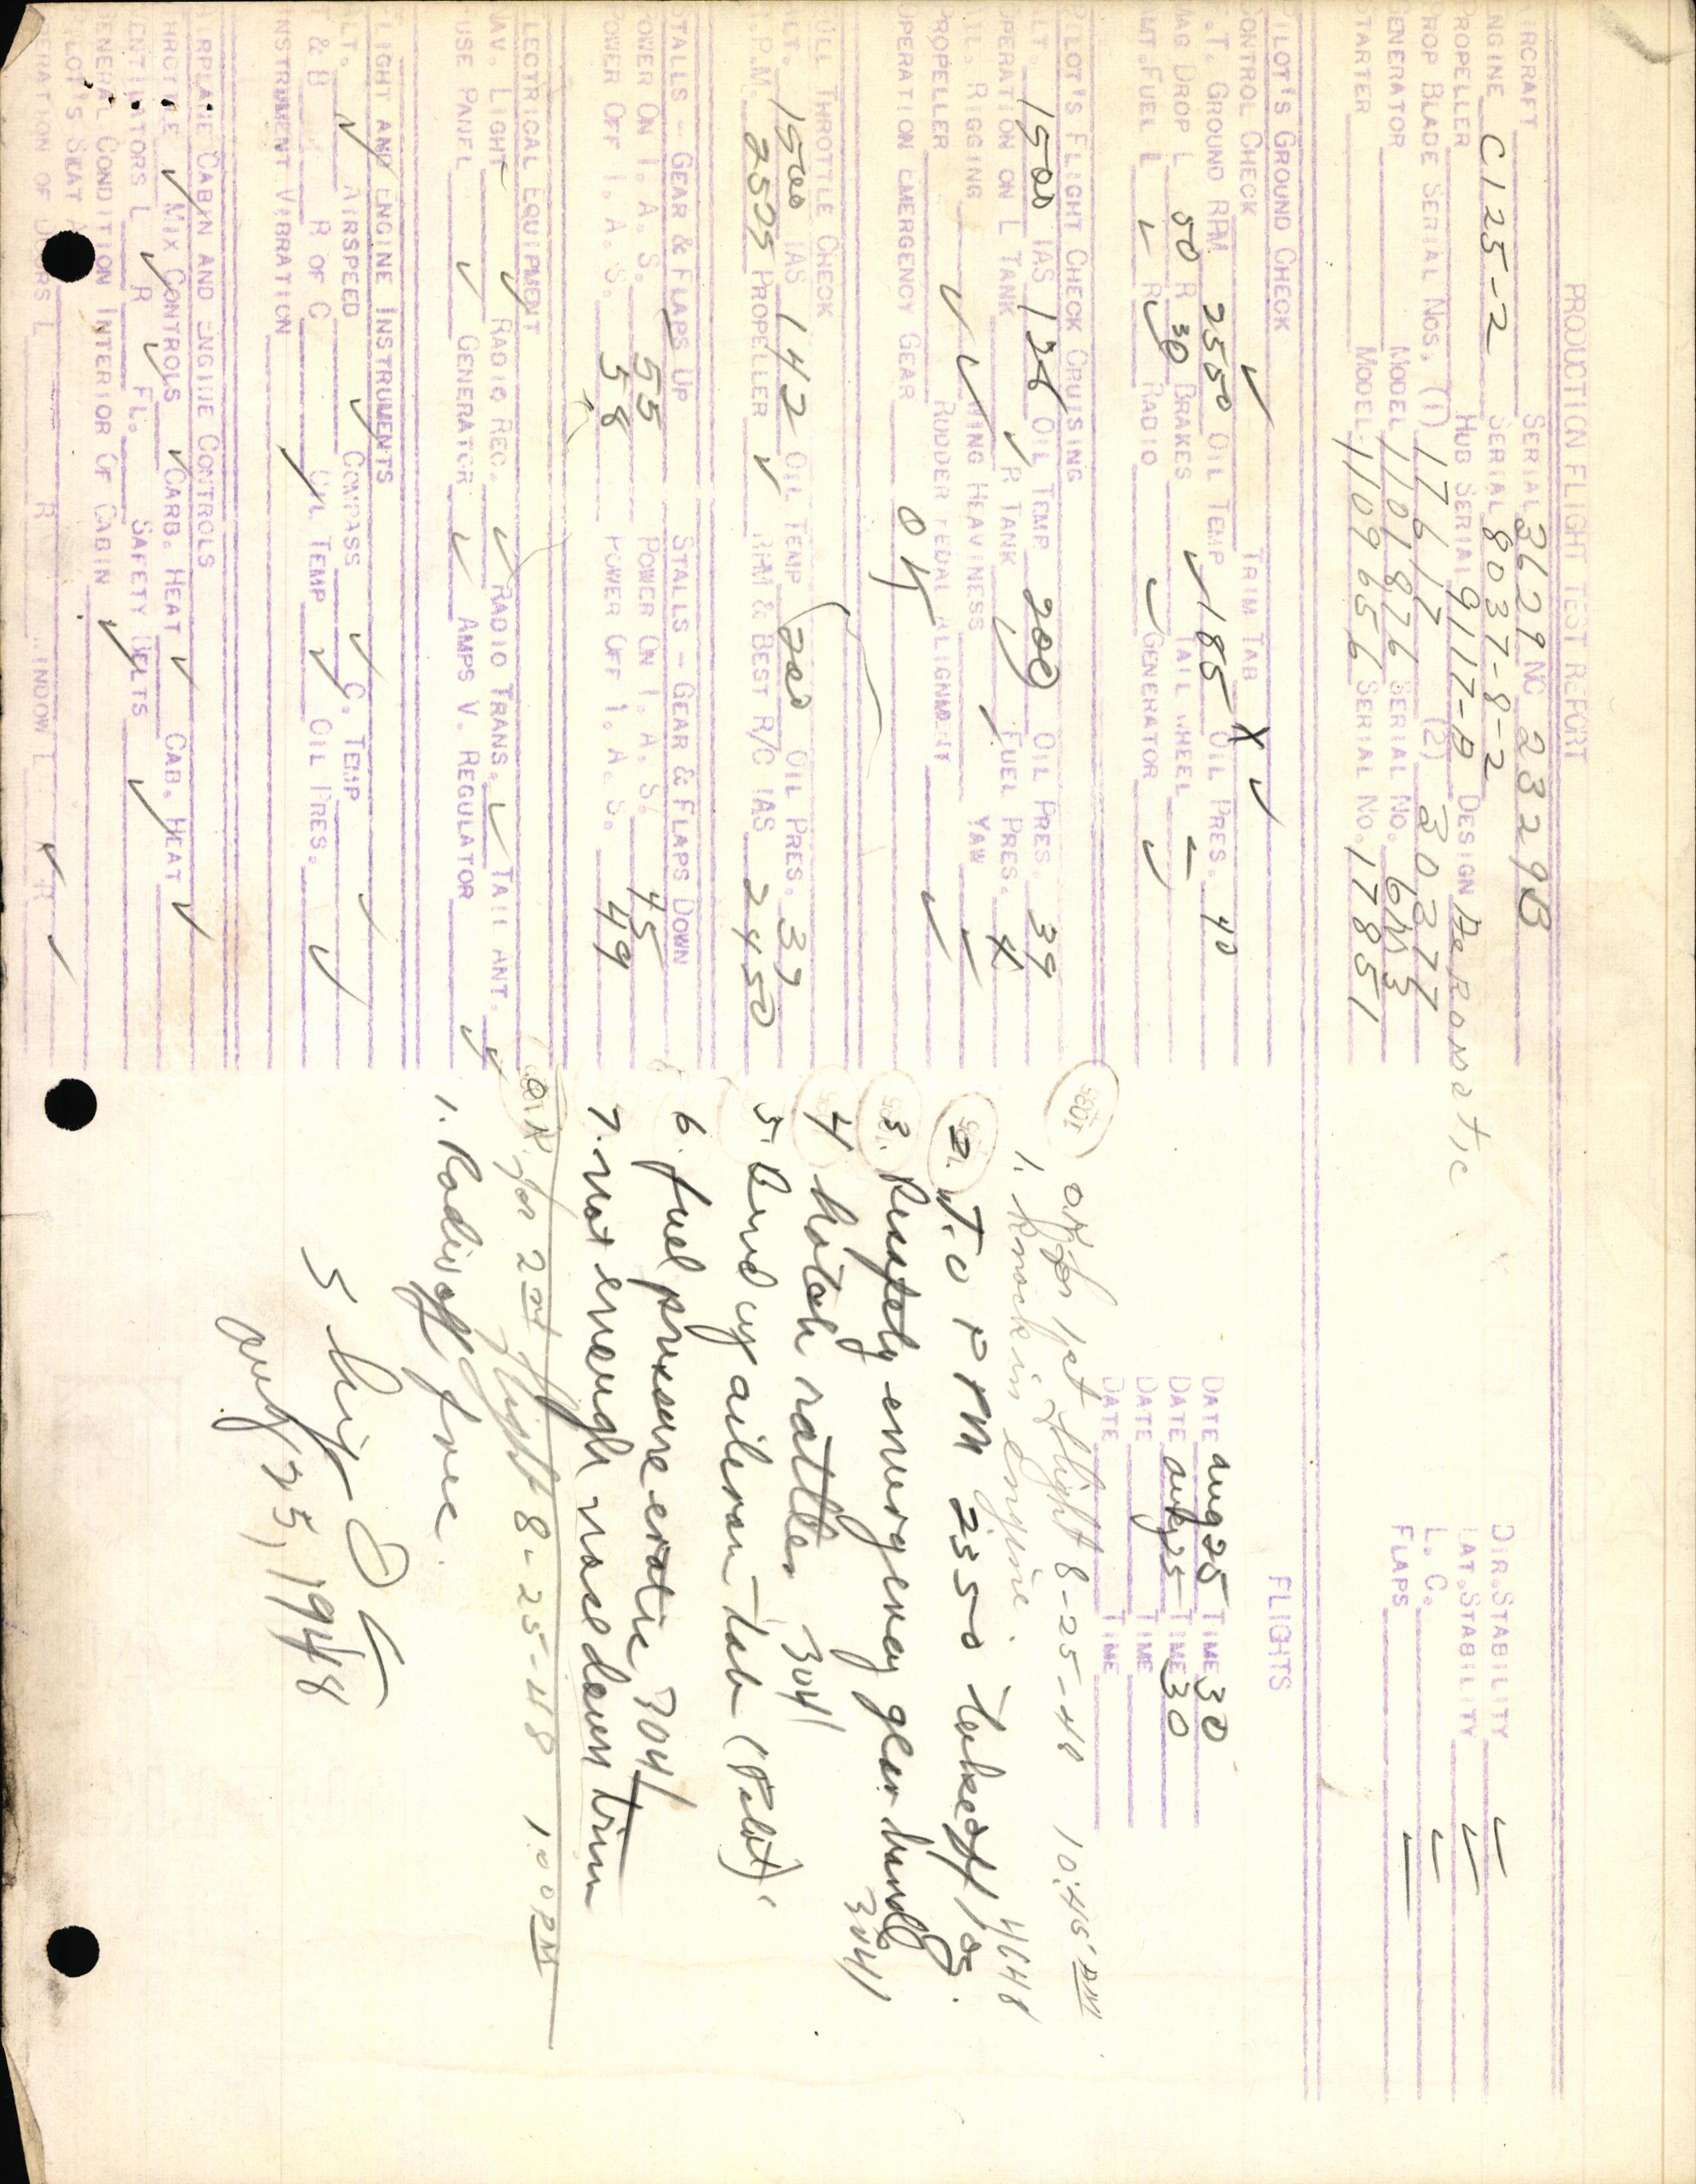 PRODUCTION FLIGHT TEST REPORT
AIRCRAFT SERIAL 3629 NC 2329B DIR. STABILITY ✓
ENGINE C125-2 SERIAL 8037-8-2 LAT. STABILITY ✓
PROPELLER HUB SERIAL 9117-D DESIGN Aeromatic L. C. ✓
PROP BLADE SERIAL NOS. (1) 17617 (2) 30377 FLAPS
GENERATOR MODEL 1101876 SERIAL NO. 6M3
STARTER MODEL 1109656 SERIAL NO. 17851
PILOT'S GROUND CHECK FLIGHTS
CONTROL CHECK ✓ TRIM TAB X ✓
S.T. GROUND RPM 2550 OIL TEMP ✓ 185 OIL PRES. 40 DATE Aug 25 TIME 30
MAG DROP L 50 R 30 BRAKES TAIL WHEEL DATE Aug 25 TIME 30
AMT. FUEL L ✓ R ✓ RADIO ✓ GENERATOR ✓ DATE TIME
DATE TIME
PILOT'S FLIGHT CHECK CRUISING
ALT. 1500 IAS 126 OIL TEMP 200 OIL PRES. 39
OPERATION ON L TANK ✓ R TANK FUEL PRES. 4
AIL. RIGGING ✓ WING HEAVINESS YAW
PROPELLER ✓ RUDDER PEDAL ALIGNMENT ✓
OPERATION EMERGENCY GEAR OK
FULL THROTTLE CHECK
ALT. 1500 IAS 142 OIL TEMP 200 OIL PRES. 37
R.P.M. 2575 PROPELLER ✓ RPM & BEST R/C IAS 2450
STALLS - GEAR & FLAPS UP STALLS - GEAR & FLAPS DOWN
POWER ON I. A. S. 55 POWER ON I. A. S. 45
POWER OFF I. A. S. 58 POWER OFF I. A. S. 49
ELECTRICAL EQUIPMENT
NAV. LIGHT ✓ RADIO REC. ✓ RADIO TRANS. ✓ TAIL ANT. ✓
FUSE PANEL ✓ GENERATOR ✓ AMPS V. REGULATOR
FLIGHT AND ENGINE INSTRUMENTS
ALT. ✓ AIRSPEED ✓ COMPASS ✓ C. TEMP ✓
T & B R OF C OIL TEMP ✓ OIL PRES. ✓
INSTRUMENT VIBRATION
AIRPLANE CABIN AND ENGINE CONTROLS
THROTTLE ✓ MIX CONTROLS ✓ CARB. HEAT ✓ CAB. HEAT ✓
VENTILATORS L ✓ R ✓ FL. SAFETY BELTS ✓
GENERAL CONDITION INTERIOR OF CABIN ✓
PILOT'S SEAT
OPERATION OF DOORS L R WINDOW L ✓ R ✓
OK for 1st flight 8-25-48 10:45
1. Knock in engine. 4648
2. T.O RPM 2350 takeoff
3. Resafety emergency gear handle 3041
4 hatch rattles 3041
5. Bend aileron tab
6. fuel pressure eratic 3041
7. not enough nose down trim
OK for 2nd flight 8-25-48 1:00 PM
1. Radio off free.
Ship OK
Aug 25, 1948